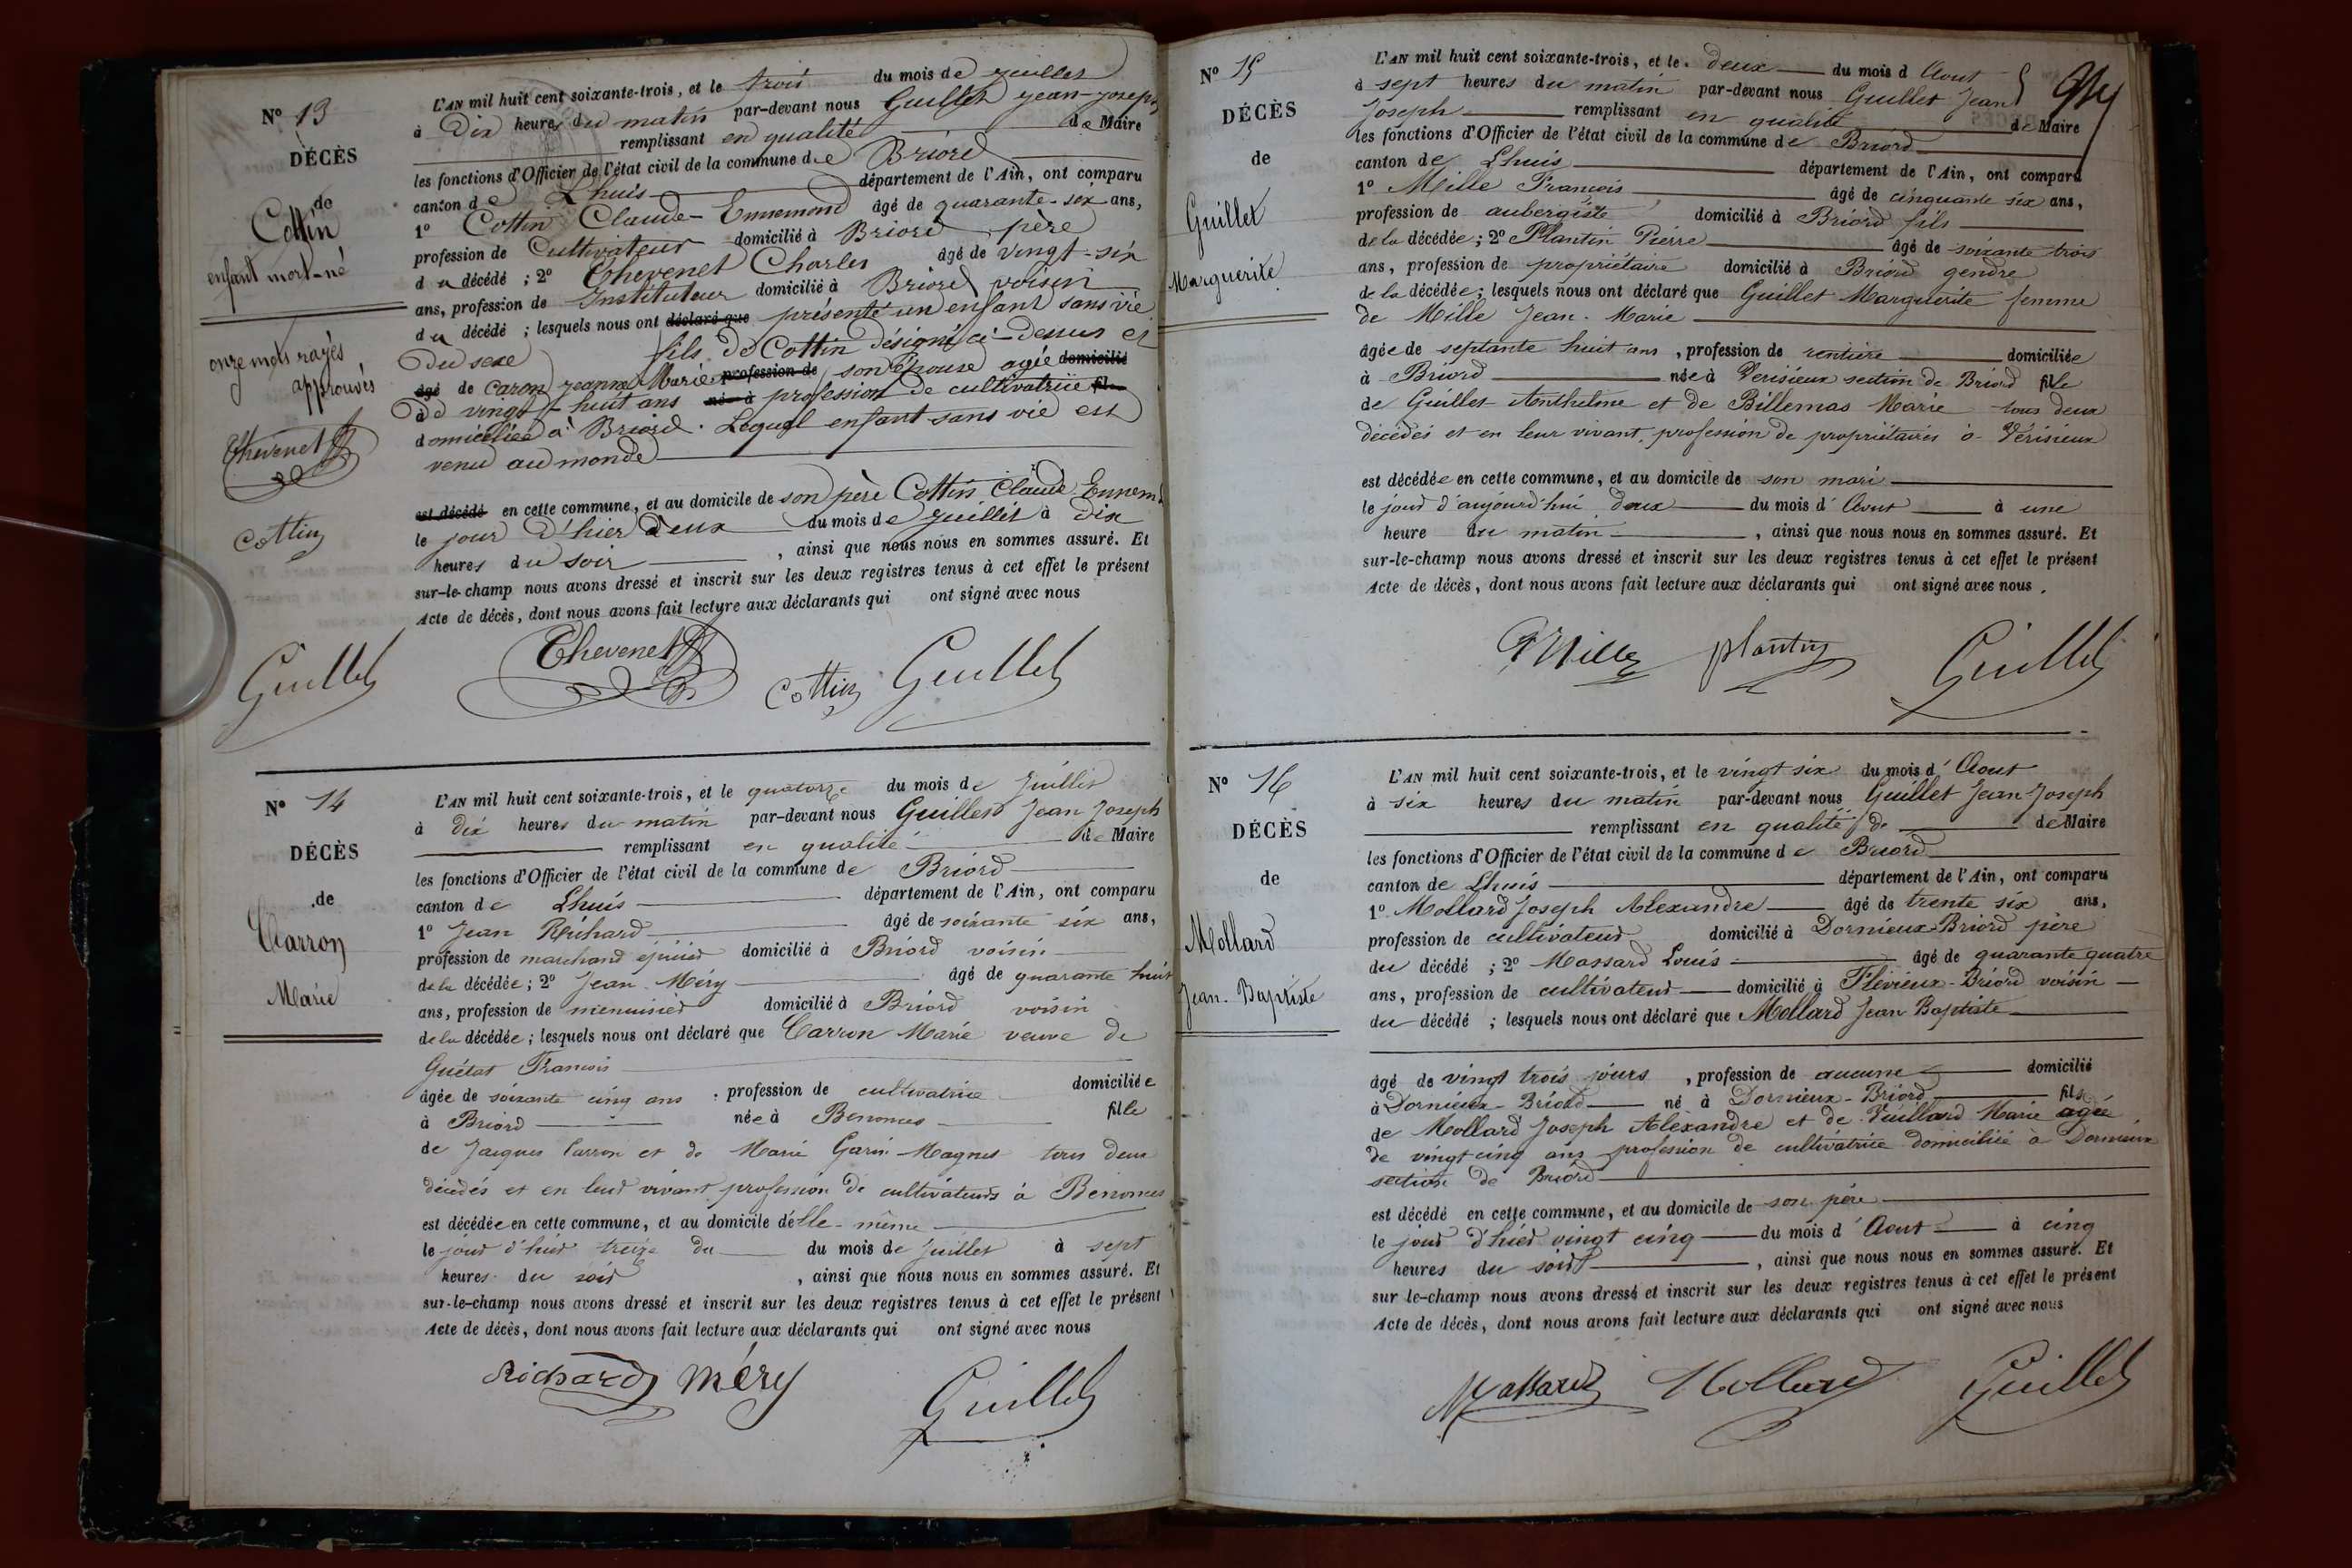 N° 13
DÉCÈS
de
Cottin
enfant mort-né
onze mots rayés
approuvés
Chevenet
Cottin
Guillet
L'AN mil huit cent soixante-trois, et le trois du mois de juillet
à Dix heures du matin par-devant nous Guillet jean-joseph
remplissant en qualité de Maire
les fonctions d'Officier de l'état civil de la commune de Briord
canton de Lhuis département de l'Ain, ont comparu
1° Cottin Claude-Ennemond âgé de quarante-six ans,
profession de Cultivateur domicilié à Briord père
du décédé ; 2° Chevenet Charles âgé de vingt-six
ans, profession de Instituteur domicilié à Briord voisin
du décédé ; lesquels nous ont déclaré que présenté un enfant sans vie
du sexe fils de Cottin désigné ci-dessus et
âgé de Caron jeanne Marie profession de son épouse agée domicilié
à de vingt-huit ans né à profession de cultivatrice fil
domiciliée à Briord. Lequel enfant sans vie est
venu au monde
est décédé en cette commune, et au domicile de son père Cottin Claude Ennem.
le jour d'hier deux du mois de juillet à dix
heures du soir , ainsi que nous nous en sommes assuré. Et
sur-le-champ nous avons dressé et inscrit sur les deux registres tenus à cet effet le présent
Acte de décès, dont nous avons fait lecture aux déclarants qui ont signé avec nous
Chevenet Cottin Guillet
N° 14
DÉCÈS
de
Carron
Marie
L'AN mil huit cent soixante-trois, et le quatorze du mois de Juillet
à dix heures du matin par-devant nous Guillet Jean Joseph
remplissant en qualité de Maire
les fonctions d'Officier de l'état civil de la commune de Briord
canton de Lhuis département de l'Ain, ont comparu
1° Jean Richard âgé de soixante six ans,
profession de marchand épicier domicilié à Briord voisin
de la décédée ; 2° Jean Méry âgé de quarante huit
ans, profession de menuisier domicilié à Briord voisin
de la décédée ; lesquels nous ont déclaré que Carron Marie veuve de
Guétat Francois
âgée de soixante cinq ans , profession de cultivatrice domiciliée
à Briord née à Benonces fille
de Jacques Carron et de Marie Garin-Magnet tous deux
décédés et en leur vivant profession de cultivateurs à Benonces
est décédée en cette commune, et au domicile d'elle-même
le jour d'hier treize du du mois de Juillet à sept
heures du soir , ainsi que nous nous en sommes assuré. Et
sur-le-champ nous avons dressé et inscrit sur les deux registres tenus à cet effet le présent
Acte de décès, dont nous avons fait lecture aux déclarants qui ont signé avec nous
Richard Méry Guillet
N° 15
DÉCÈS
de
Guillet
Marguerite
L'AN mil huit cent soixante-trois, et le deux du mois d'Aout
à sept heures du matin par-devant nous Guillet Jean
Joseph remplissant en qualité de Maire
les fonctions d'Officier de l'état civil de la commune de Briord
canton de Lhuis département de l'Ain, ont comparu
1° Mille Francois âgé de cinquante six ans,
profession de aubergiste domicilié à Briord fils
de la décédée ; 2° Plantin Pierre âgé de soixante trois
ans, profession de propriétaire domicilié à Briord gendre
de la décédée ; lesquels nous ont déclaré que Guillet Marguerite femme
de Mille Jean-Marie
âgée de septante huit ans , profession de rentière domiciliée
à Briord née à Verisieux section de Briord fille
de Guillet Anthelme et de Billemas Marie tous deux
décédés et en leur vivant, profession de propriétaires à Vérisieux
est décédée en cette commune, et au domicile de son mari
le jour d'aujourd'hui deux du mois d'Aout à une
heure du matin , ainsi que nous nous en sommes assuré. Et
sur-le-champ nous avons dressé et inscrit sur les deux registres tenus à cet effet le présent
Acte de décès, dont nous avons fait lecture aux déclarants qui ont signé avec nous.
Mille plantin Guillet
N° 16
DÉCÈS
de
Mollard
Jean-Baptiste
L'AN mil huit cent soixante-trois, et le vingt six du mois d'Aout
à six heures du matin par-devant nous Guillet Jean-Joseph
remplissant en qualité de de Maire
les fonctions d'Officier de l'état civil de la commune de Briord
canton de Lhuis département de l'Ain, ont comparu
1° Mollard Joseph Alexandre âgé de trente six ans,
profession de cultivateur domicilié à Dornieux-Briord père
du décédé ; 2° Massard Louis âgé de quarante quatre
ans, profession de cultivateur domicilié à Flévieux-Briord voisin
du décédé ; lesquels nous ont déclaré que Mollard Jean Baptiste
âgé de vingt trois jours , profession de aucune domicilié
à Dornieux-Briord né à Dornieux-Briord fils
de Mollard Joseph Alexandre et de Vuillard Marie agée
de vingt cinq ans profession de cultivatrice domiciliée à Dornieux
section de Briord
est décédé en cette commune, et au domicile de son père
le jour d'hier vingt cinq du mois d'Aout à cinq
heures du soir , ainsi que nous nous en sommes assuré. Et
sur le-champ nous avons dressé et inscrit sur les deux registres tenus à cet effet le présent
Acte de décès, dont nous avons fait lecture aux déclarants qui ont signé avec nous
Massard Mollard Guillet